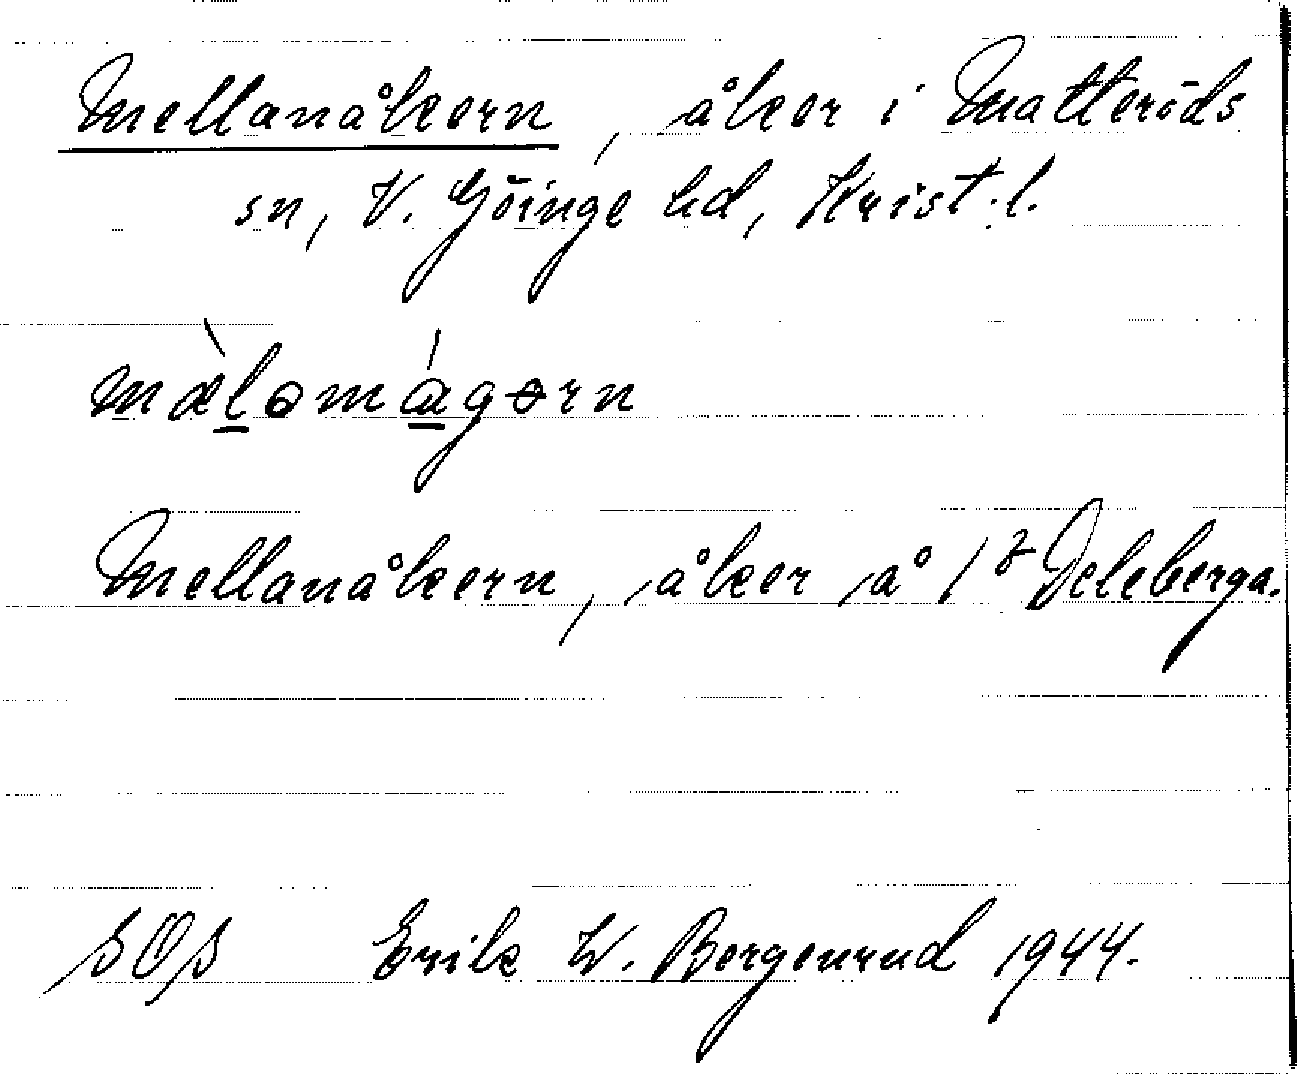 Mellanåkern, åker i Matteröds
sn, V. Göinge hd, Krist. l.
mæ̀l̲əmá̲gərn
Mellanåkern, åker å 1³ Deleberga.
SOS Erik W. Bergenrud 1944.